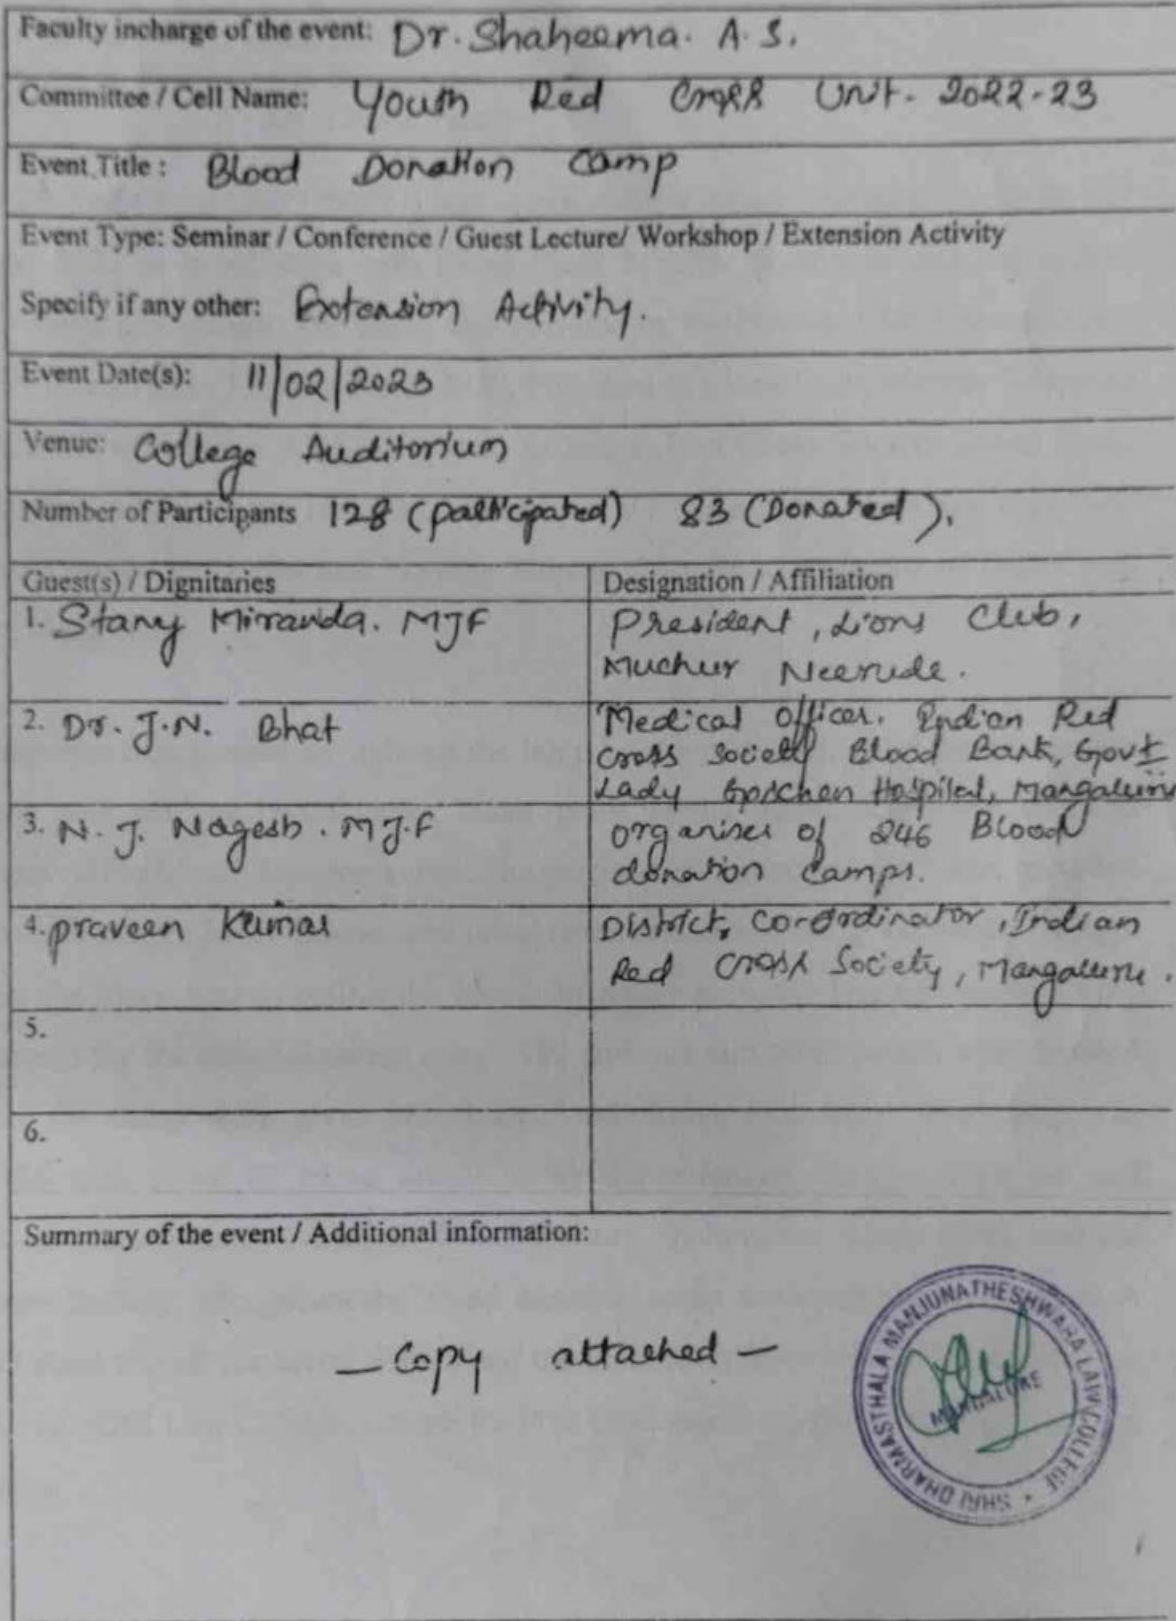 Faculty incharge of the event: Dr. Shaheema. A. S.
Committee / Cell Name: Youth Red Cross Unit. 2022-23
Event Title : Blood Donation Camp
Event Type: Seminar / Conference / Guest Lecture/ Workshop / Extension Activity
Specify if any other: Extension Activity.
Event Date(s): 11/02/2023
Venue: College Auditorium
Number of Participants 128 (participated) 83 (Donated).
Guest(s) / Dignitaries Designation / Affiliation
1. Stany Miranda. MJF President, Lions Club,
Muchur Neerude.
2. Dr. J.N. Bhat Medical Officer. Indian Red
Cross Society Blood Bank, Govt
Lady Goschen Hospital, Mangaluru
3. N. J. Nagesh. MJ.F organiser of 246 Blood
donation Camps.
4. praveen Kumar District, Co-ordinator, Indian
Red Cross Society, Mangaluru.
5.
6.
Summary of the event / Additional information:
– Copy attached –
SHRI DHARMASTHALA MANJUNATHESHWARA LAW COLLEGE
MANGALORE